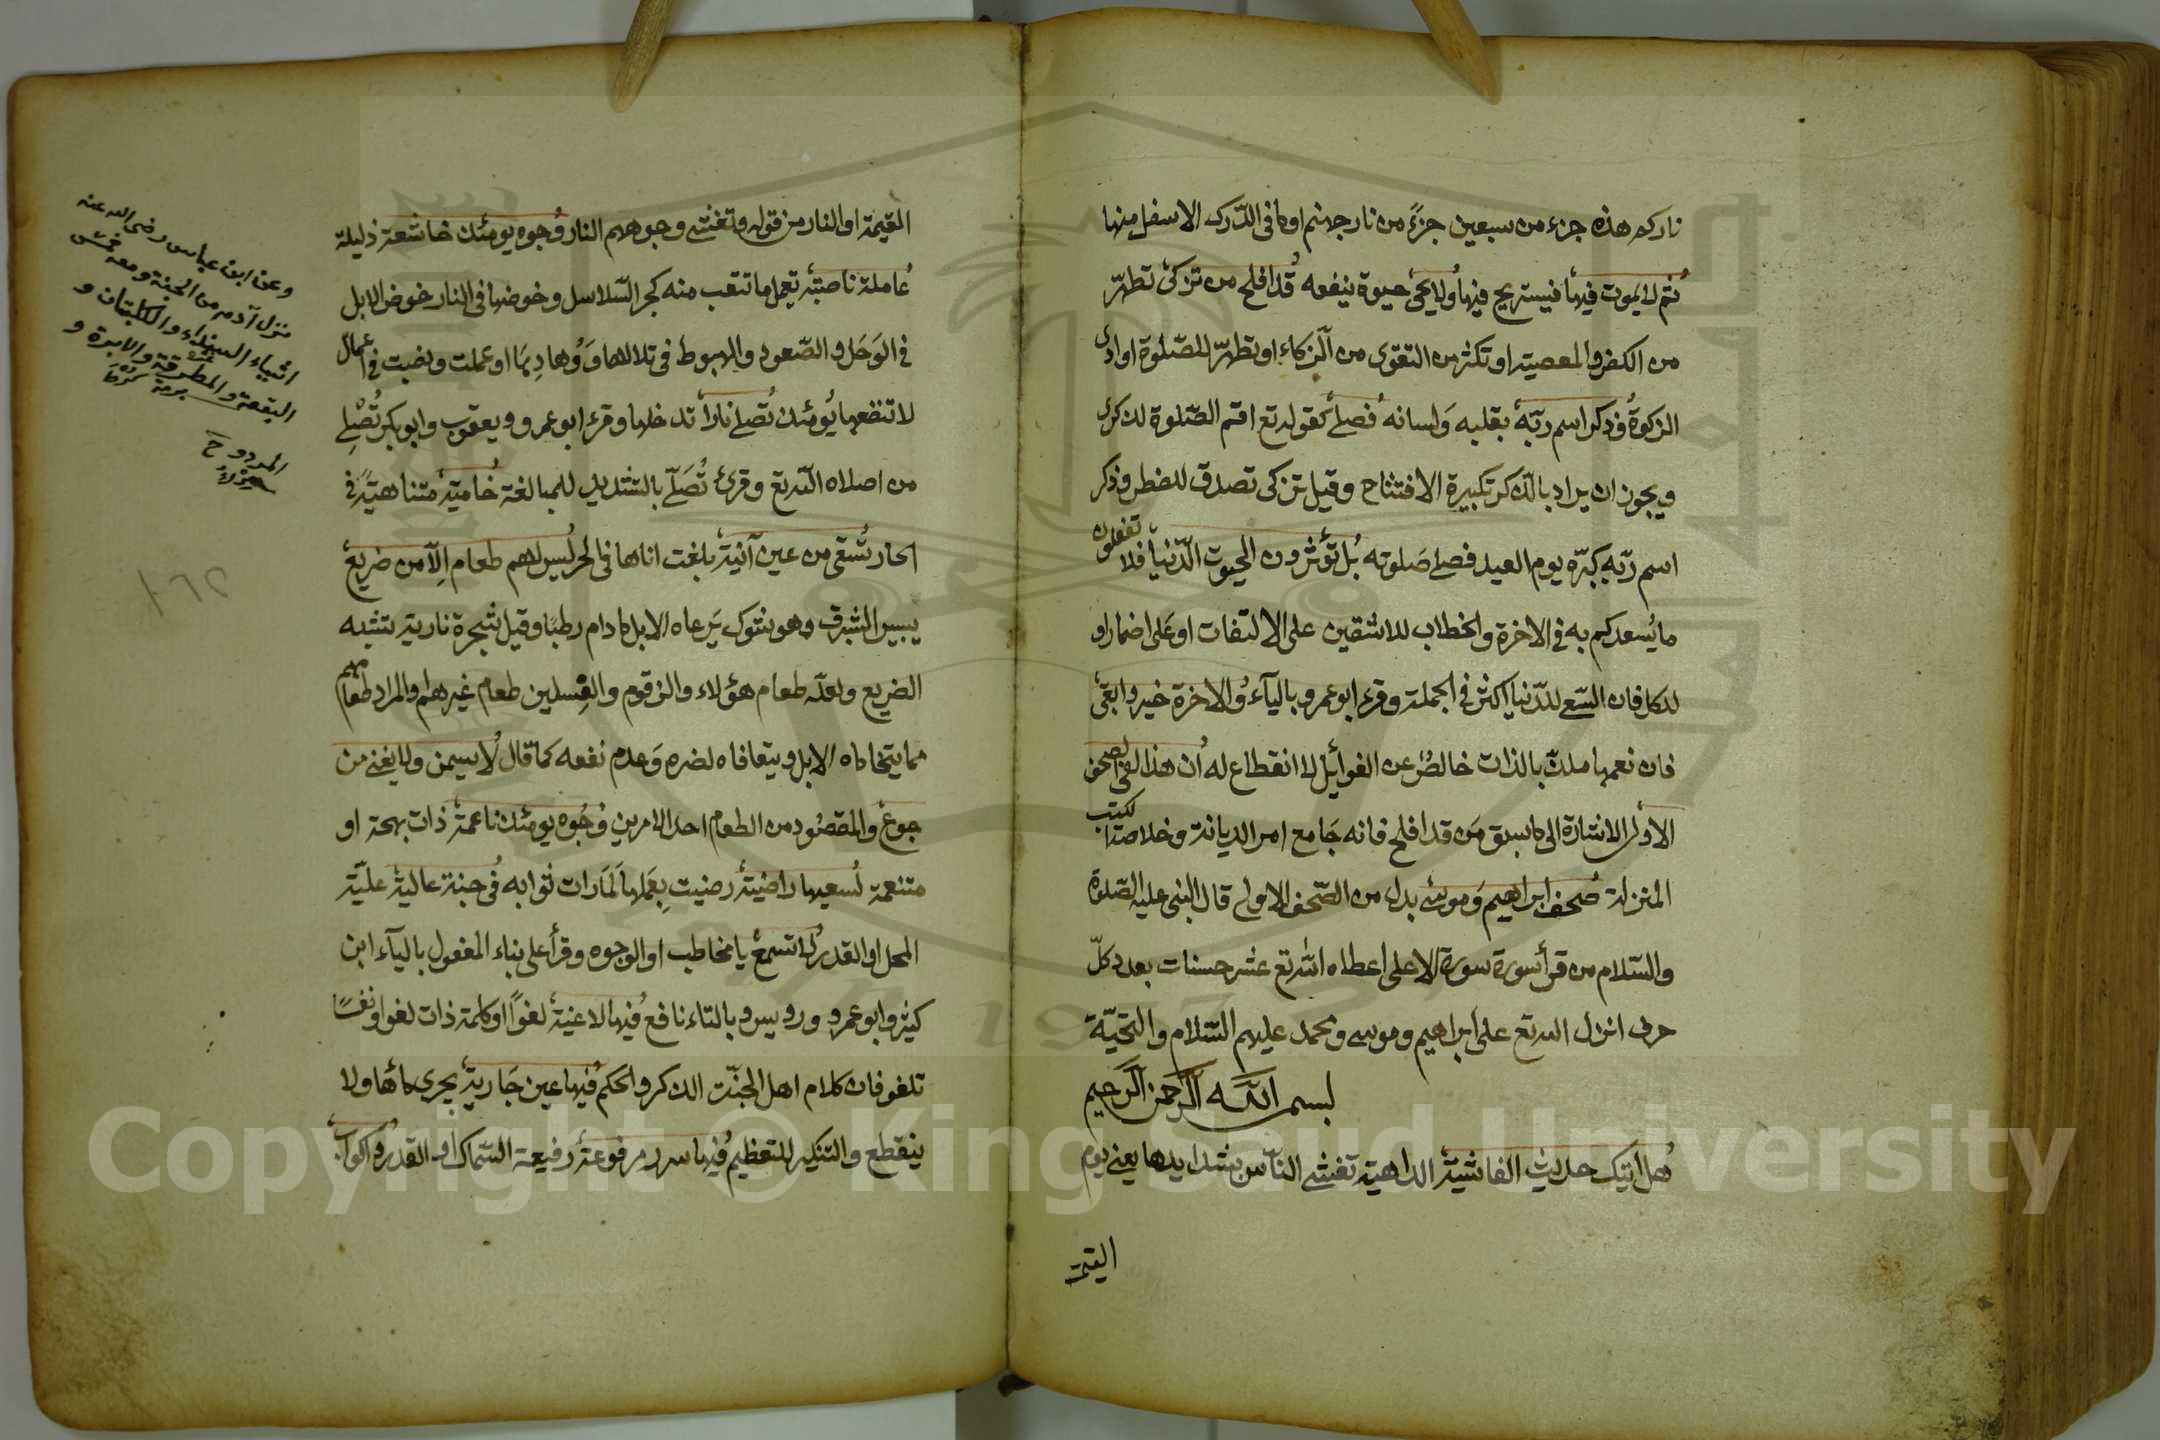 ناركم هذه جزء من سبعين جزءً من نار جهنم او ما فى الدّرك الاسفل منها
ثم لا يموت فيها فيستريح فيها ولا يحيى حيوة ينفعه قد افلح من تزكى تطهّر
من الكفر والمعصية او تكثر من التقوى من الزكاء او تطهّر للصّلوة او ادى
الزكوة وذكر اسم ربّه بقلبه وَلسانه فصلى كقوله تع اقم الصّلوة لذكرى
ويجوز ان يراد بالذّكر تكبيرة الافتتاح وقيل تزكى تصدق للفطر وذكر
اسم ربّه كبّره يوم العيد فصلى صَلوته بل تؤثرون الحيوت الدّنيا فلا تفعلون
ما يُسعدكم به فى الاخرة والخطاب للاشقين على الالتفات او عَلى اضمار او
للكل فان السّعى للدّنيا اكثر فى الجملة وقرء ابو عمرو باليآء والاخرة خير وابقى
فان نعيمها ملذّ بالذات خالصٌ عن الغوائل لا انقطاع له ان هذا لفى الصحف
الاولى الاشارة الى ما سبق مَن قد افلح فانه جَامع امر الديانة وخلاصة الكتب
المنزلة صُحف ابراهيم وَموسى بدل من الصّحف الاولى قال النبى عليه الصّلوة
والسّلام من قرأ سورة سورة الاعلى اعطاه اللّه تع عشر حسنات بعدد كلّ
حرف انزل الله تع على ابراهيم وموسى ومحمد عليهم السّلام والتحيّة
بسم اللّه الرّحمن الرّحيم
هل اتيك حديث الغاشية الداهية تغشى النّاس بشدايدها يعنى يوم
القيمة
القيمة او النار من قوله وتغشى وجوههم النار وُجوه يومئذ خاشعة ذليلة
عُاملة ناصبة تعمل ما تتعب منه كجر السّلاسل وخوضها فى النار خوض الابل
فى الوَحَل والصّعود والهبوط فى تلالها وَوُهادِها او عملت ونصبت فى اعمال
لا تنفعها يُومئذ تُصلى ناراً تدخلها وقرء ابو عمرو ويعقوب وابو بكر تُصْلى
من اصلاه الله تع وقرئ تُصَلّى بالتشديد للمبالغة حُامية متناهيةً فى
الحار تسْقى من عين آنية بلغت اناها فى الحر ليس لهم طعام اِلّا من ضريع
يبيس الشبرق وهو شوك يَرعاه الابل ما دام رطبًا وقيل شجرة نارية تشبه
الضريع ولعلّه طعام هؤلاء والزقوم والغِسلين طعام غيرهم والمراد طعامهم
مما يتحاماه الابل ويتعافاه لضره وَعدم نفعه كما قال لُا يسمن ولا يغنى من
جوع والمقصُود من الطعام احد الامرين وجُوه يومئذ ناعمة ذات بهجة او
متنعمة لُسعيها راضية رضيت بِعَملها لَمارات ثوابه فُى جنة عالية عليّة
المحل او القدر لُا تسمع يا مخاطب او الوجوه وقرأ على بناء المفعول باليآء ابن
كثير وابو عمرو ورويس وبالتاء نافع فُيها لاغية لغواً او كلمة ذات لغو او نفسًا
تلغو فان كلام اهل الجنّة الذكر والحكم فُيها عين جَارية يجرى ماؤها ولا
ينقطع والتنكير للتعظيم فُيها سرر مرفوعة رفيعة السّماك او القدر وُاكواب
وعن ابن عباس رضى الله عنه
نزل آدم من الجنة ومعه خمسة
اشياء السنداء والكلبتان و
اليقعة والمطرقة والابرة و